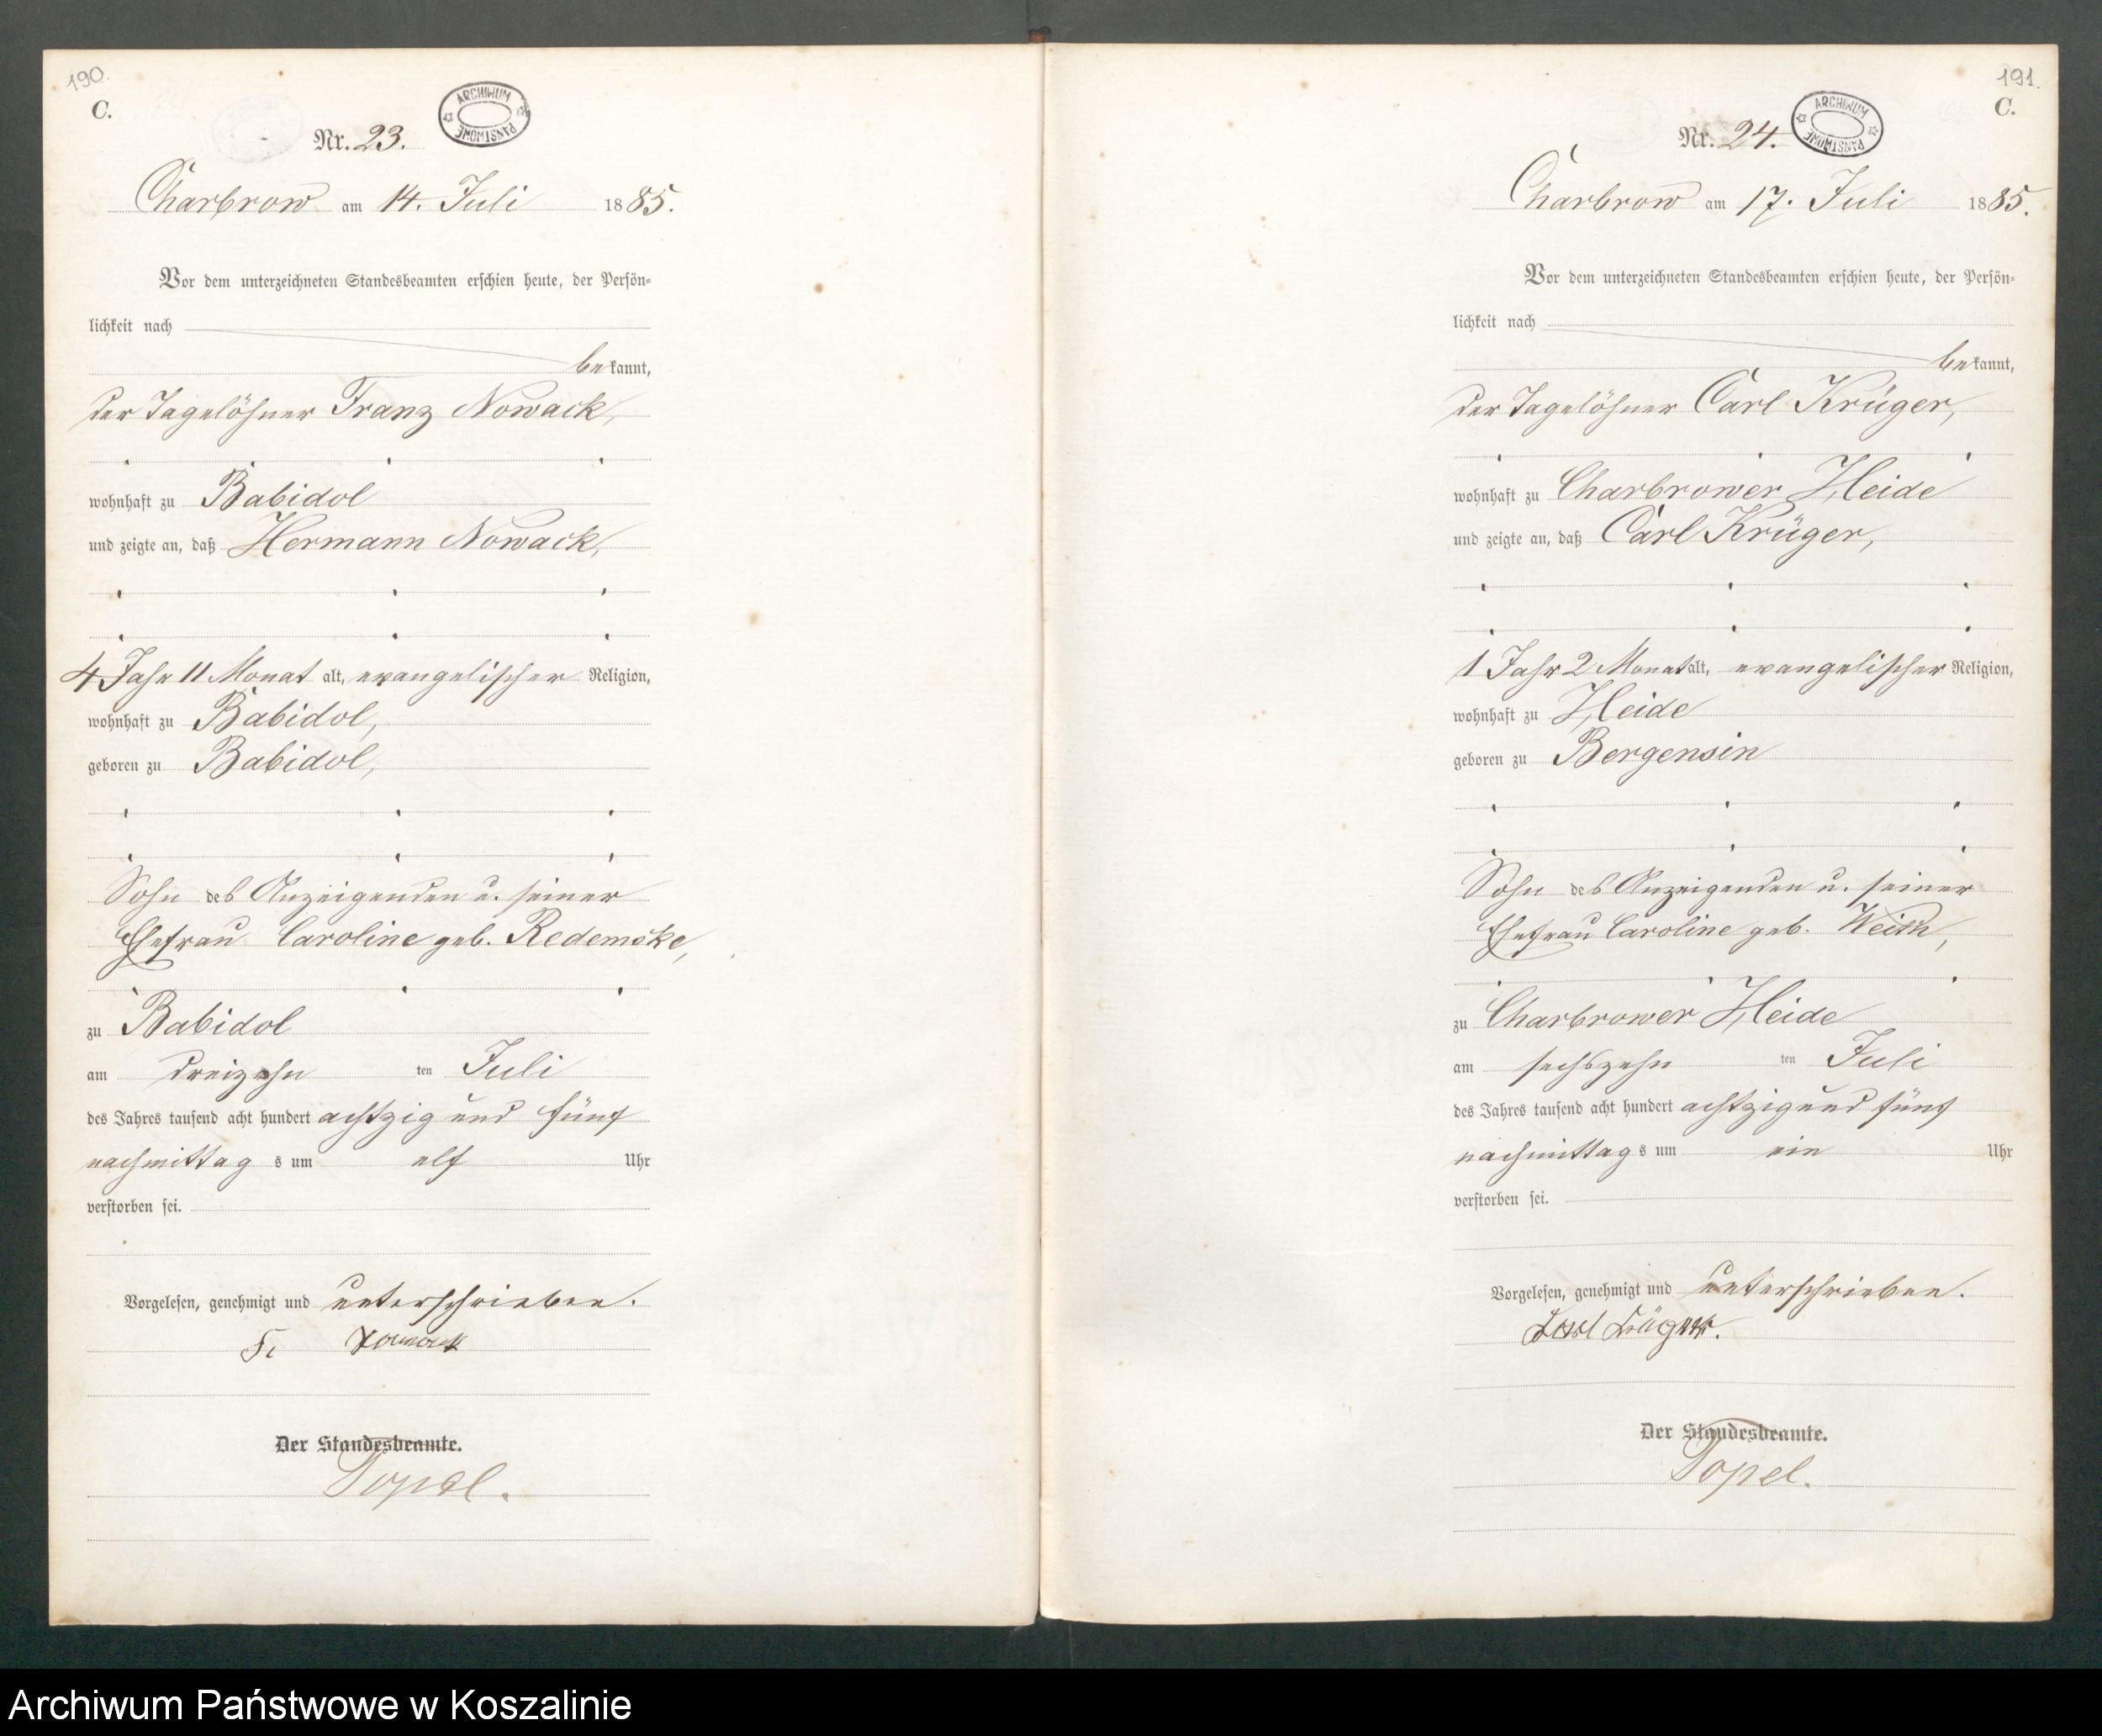 190.
C.
ARCHIWUM PAŃSTWOWE
Nr. 23.
Charbrow am 14. Juli 1885.
Vor dem unterzeichneten Standesbeamten erschien heute, der Persön-
lichkeit nach
bekannt,
der Tagelöhner Franz Nowack,
wohnhaft zu Babidol
und zeigte an, daß Hermann Nowack,
4 Jahr 11 Monat alt, evangelischer Religion,
wohnhaft zu Babidol,
geboren zu Babidol,
Sohn des Anzeigenden u. seiner
Ehefrau Caroline geb. Redemske,
zu Babidol
am dreizehn ten Juli
des Jahres tausend acht hundert achtzig und fünf
nachmittag s um elf Uhr
verstorben sei.
Vorgelesen, genehmigt und unterschrieben.
Fr Nowack
Der Standesbeamte.
Popel.
191.
C.
ARCHIWUM PAŃSTWOWE
Nr. 24.
Charbrow am 17. Juli 1885.
Vor dem unterzeichneten Standesbeamten erschien heute, der Persön-
lichkeit nach
bekannt,
der Tagelöhner Carl Krüger,
wohnhaft zu Charbrower Heide
und zeigte an, daß Carl Krüger,
1 Jahr 2 Monat alt, evangelischer Religion,
wohnhaft zu Heide
geboren zu Bergensin
Sohn des Anzeigenden u. seiner
Ehefrau Caroline geb.
zu Charbrower Heide
am sechszehn ten Juli
des Jahres tausend acht hundert achtzig und fünf
nachmittag s um ein Uhr
verstorben sei.
Vorgelesen, genehmigt und unterschrieben.
Carl Krüger.
Der Standesbeamte.
Popel.
Archiwum Państwowe w Koszalinie